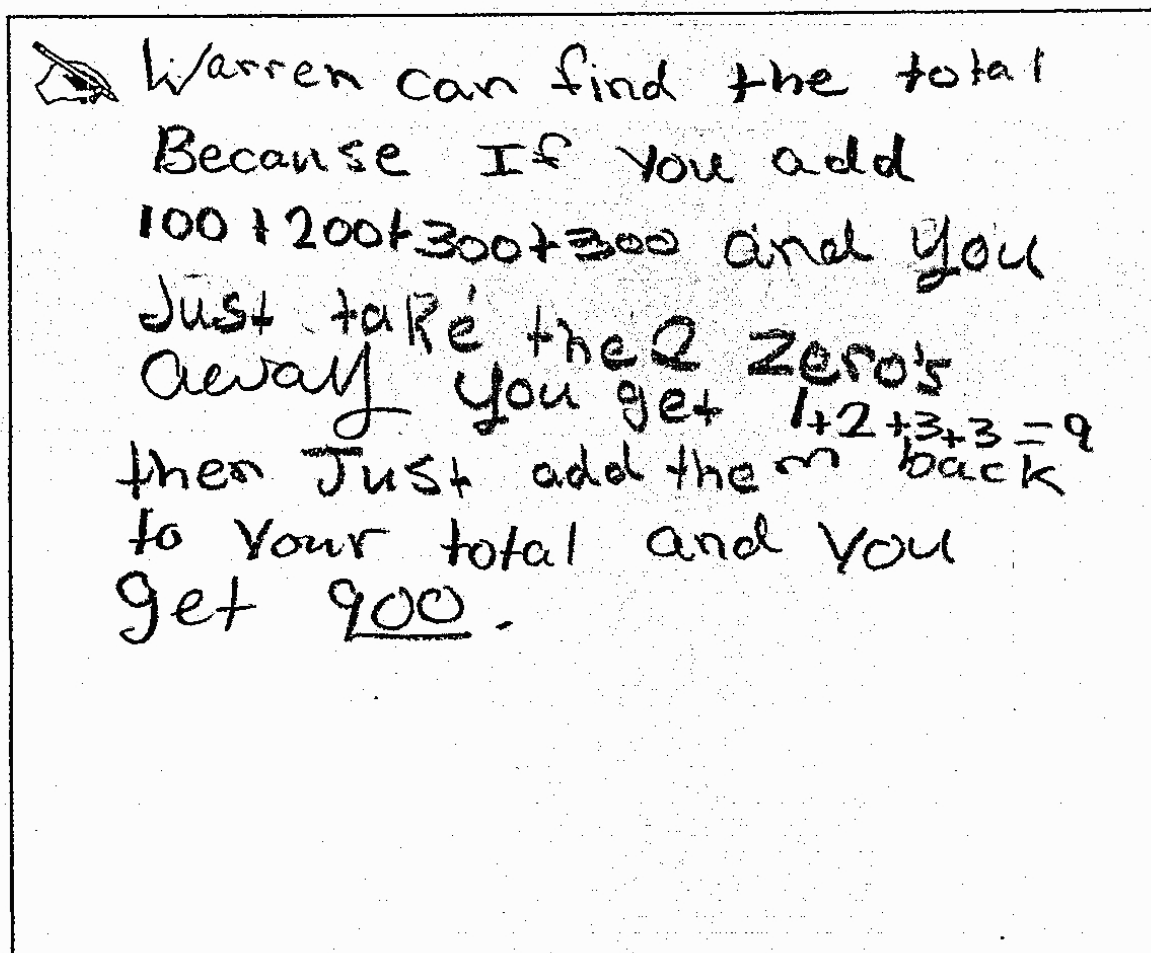 Warren can find the total
Because If you add
100 + 200 + 300 + 300 and you
Just take the 2 zero's
away you get 1+2+3+3=9
then Just add them back
to your total and you
get 900.